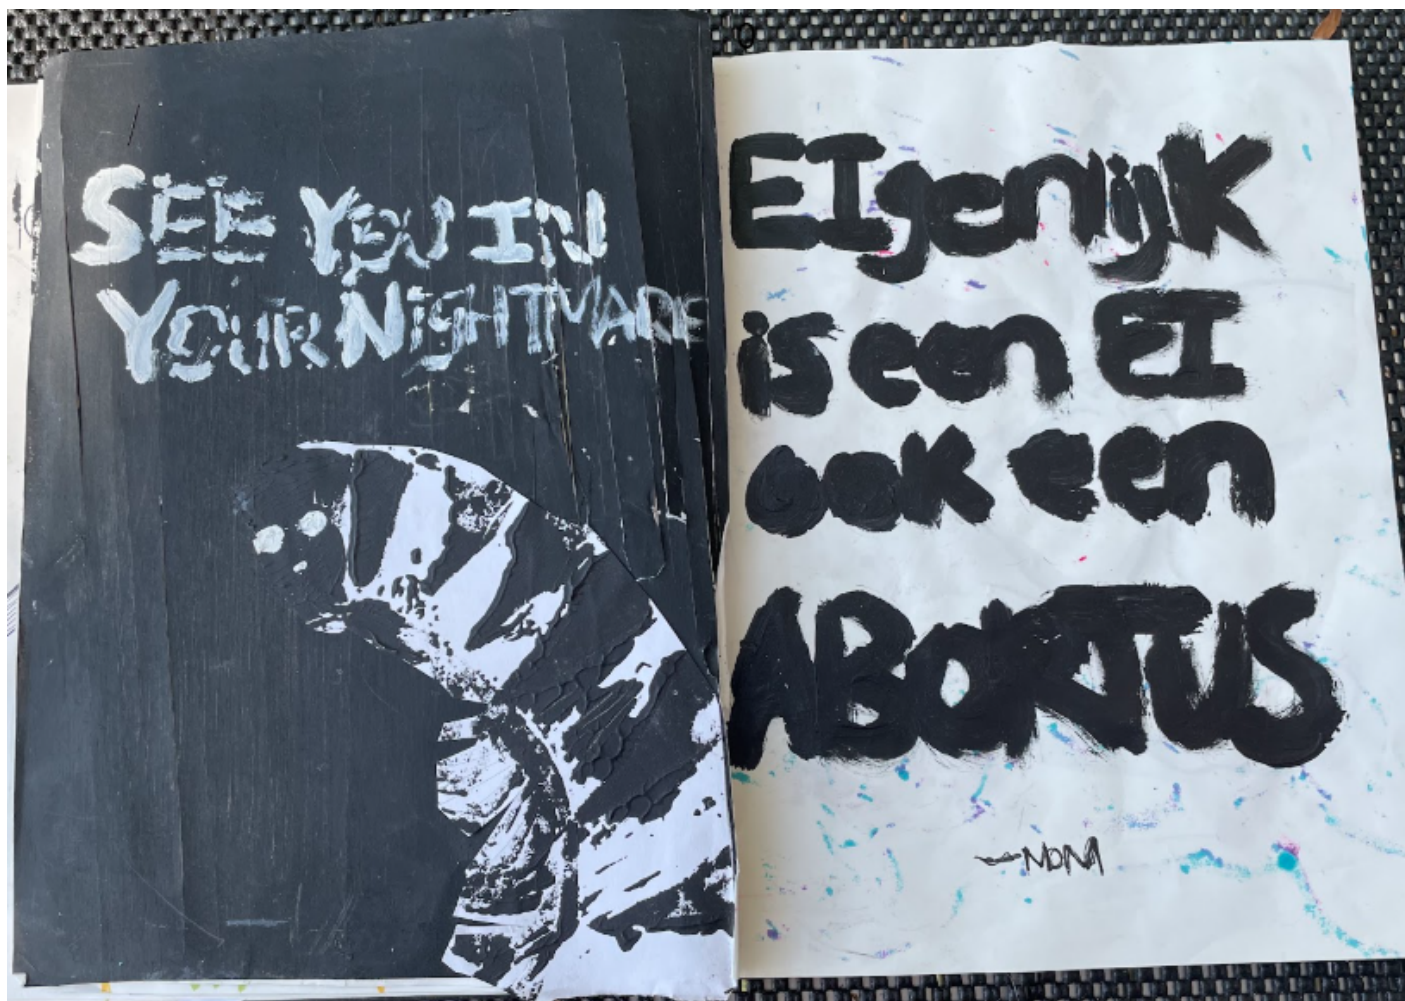 SEE YOU IN
YOUR NIGHTMARE
EIgenlijk
is een EI
ook een
ABORTUS
—MONA